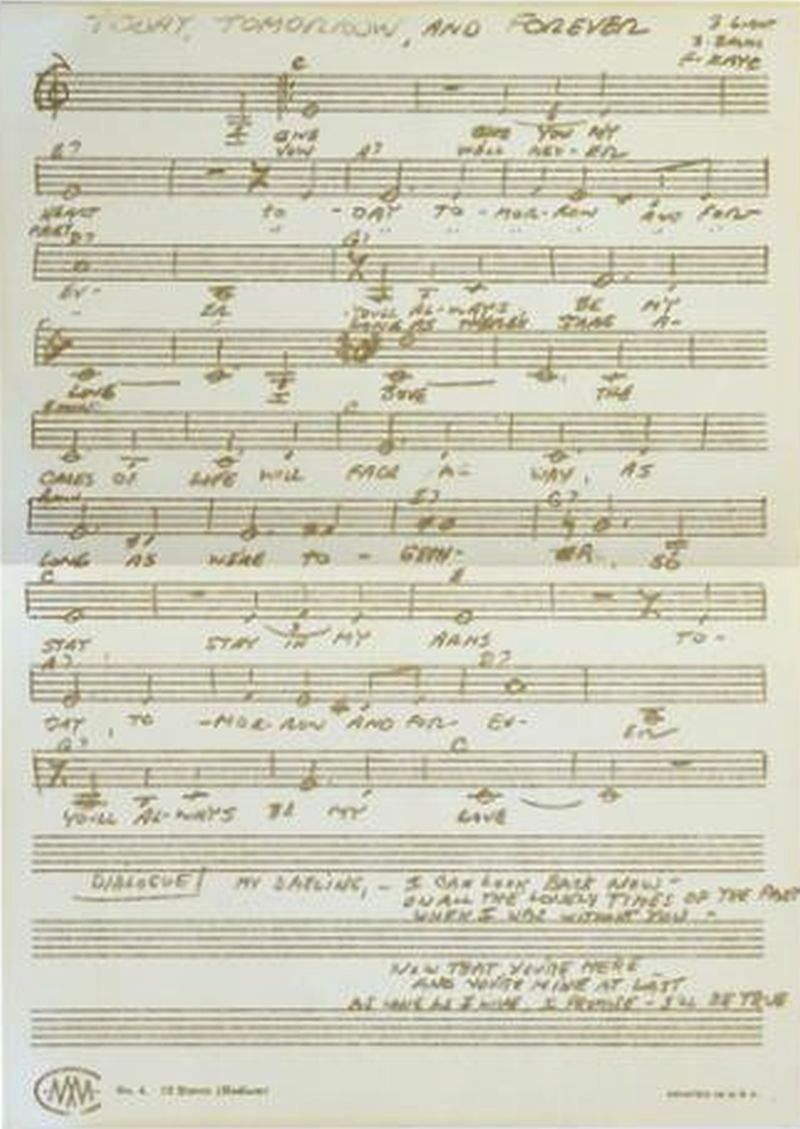 TODAY, TOMORROW, AND FOREVER
F. KAYE
C
I GIVE YOU MY
VOW WILL NEV-ER
E7 A7
HEART TO - DAY TO - MOR-ROW AND FOR-
PART " " " " " "
D7 G7
EV- ER YOU'LL AL-WAYS BE MY
LONG AS THERE'S A-
C
LOVE I BOVE THE
C
CARES OF LIFE WILL FADE A- WAY, AS
E7 G7
LONG AS WE'RE TO - GETH- ER, SO
C
STAY STAY IN MY ARMS TO-
A7 D7
DAY, TO -MOR-ROW AND FOR- EV- ER
G7 C
YOU'LL AL-WAYS BE MY LOVE
DIALOGUE/ MY DARLING, - I CAN LOOK BACK NOW -
ON ALL THE LONELY TIMES OF THE PAST
WHEN I WAS WITHOUT YOU -
NOW THAT YOU'RE HERE
AND YOU'RE MINE AT LAST
AS LONG AS I LIVE, I PROMISE - I'LL BE TRUE
No. 4 12 Stave (Medium)
PRINTED IN U.S.A.